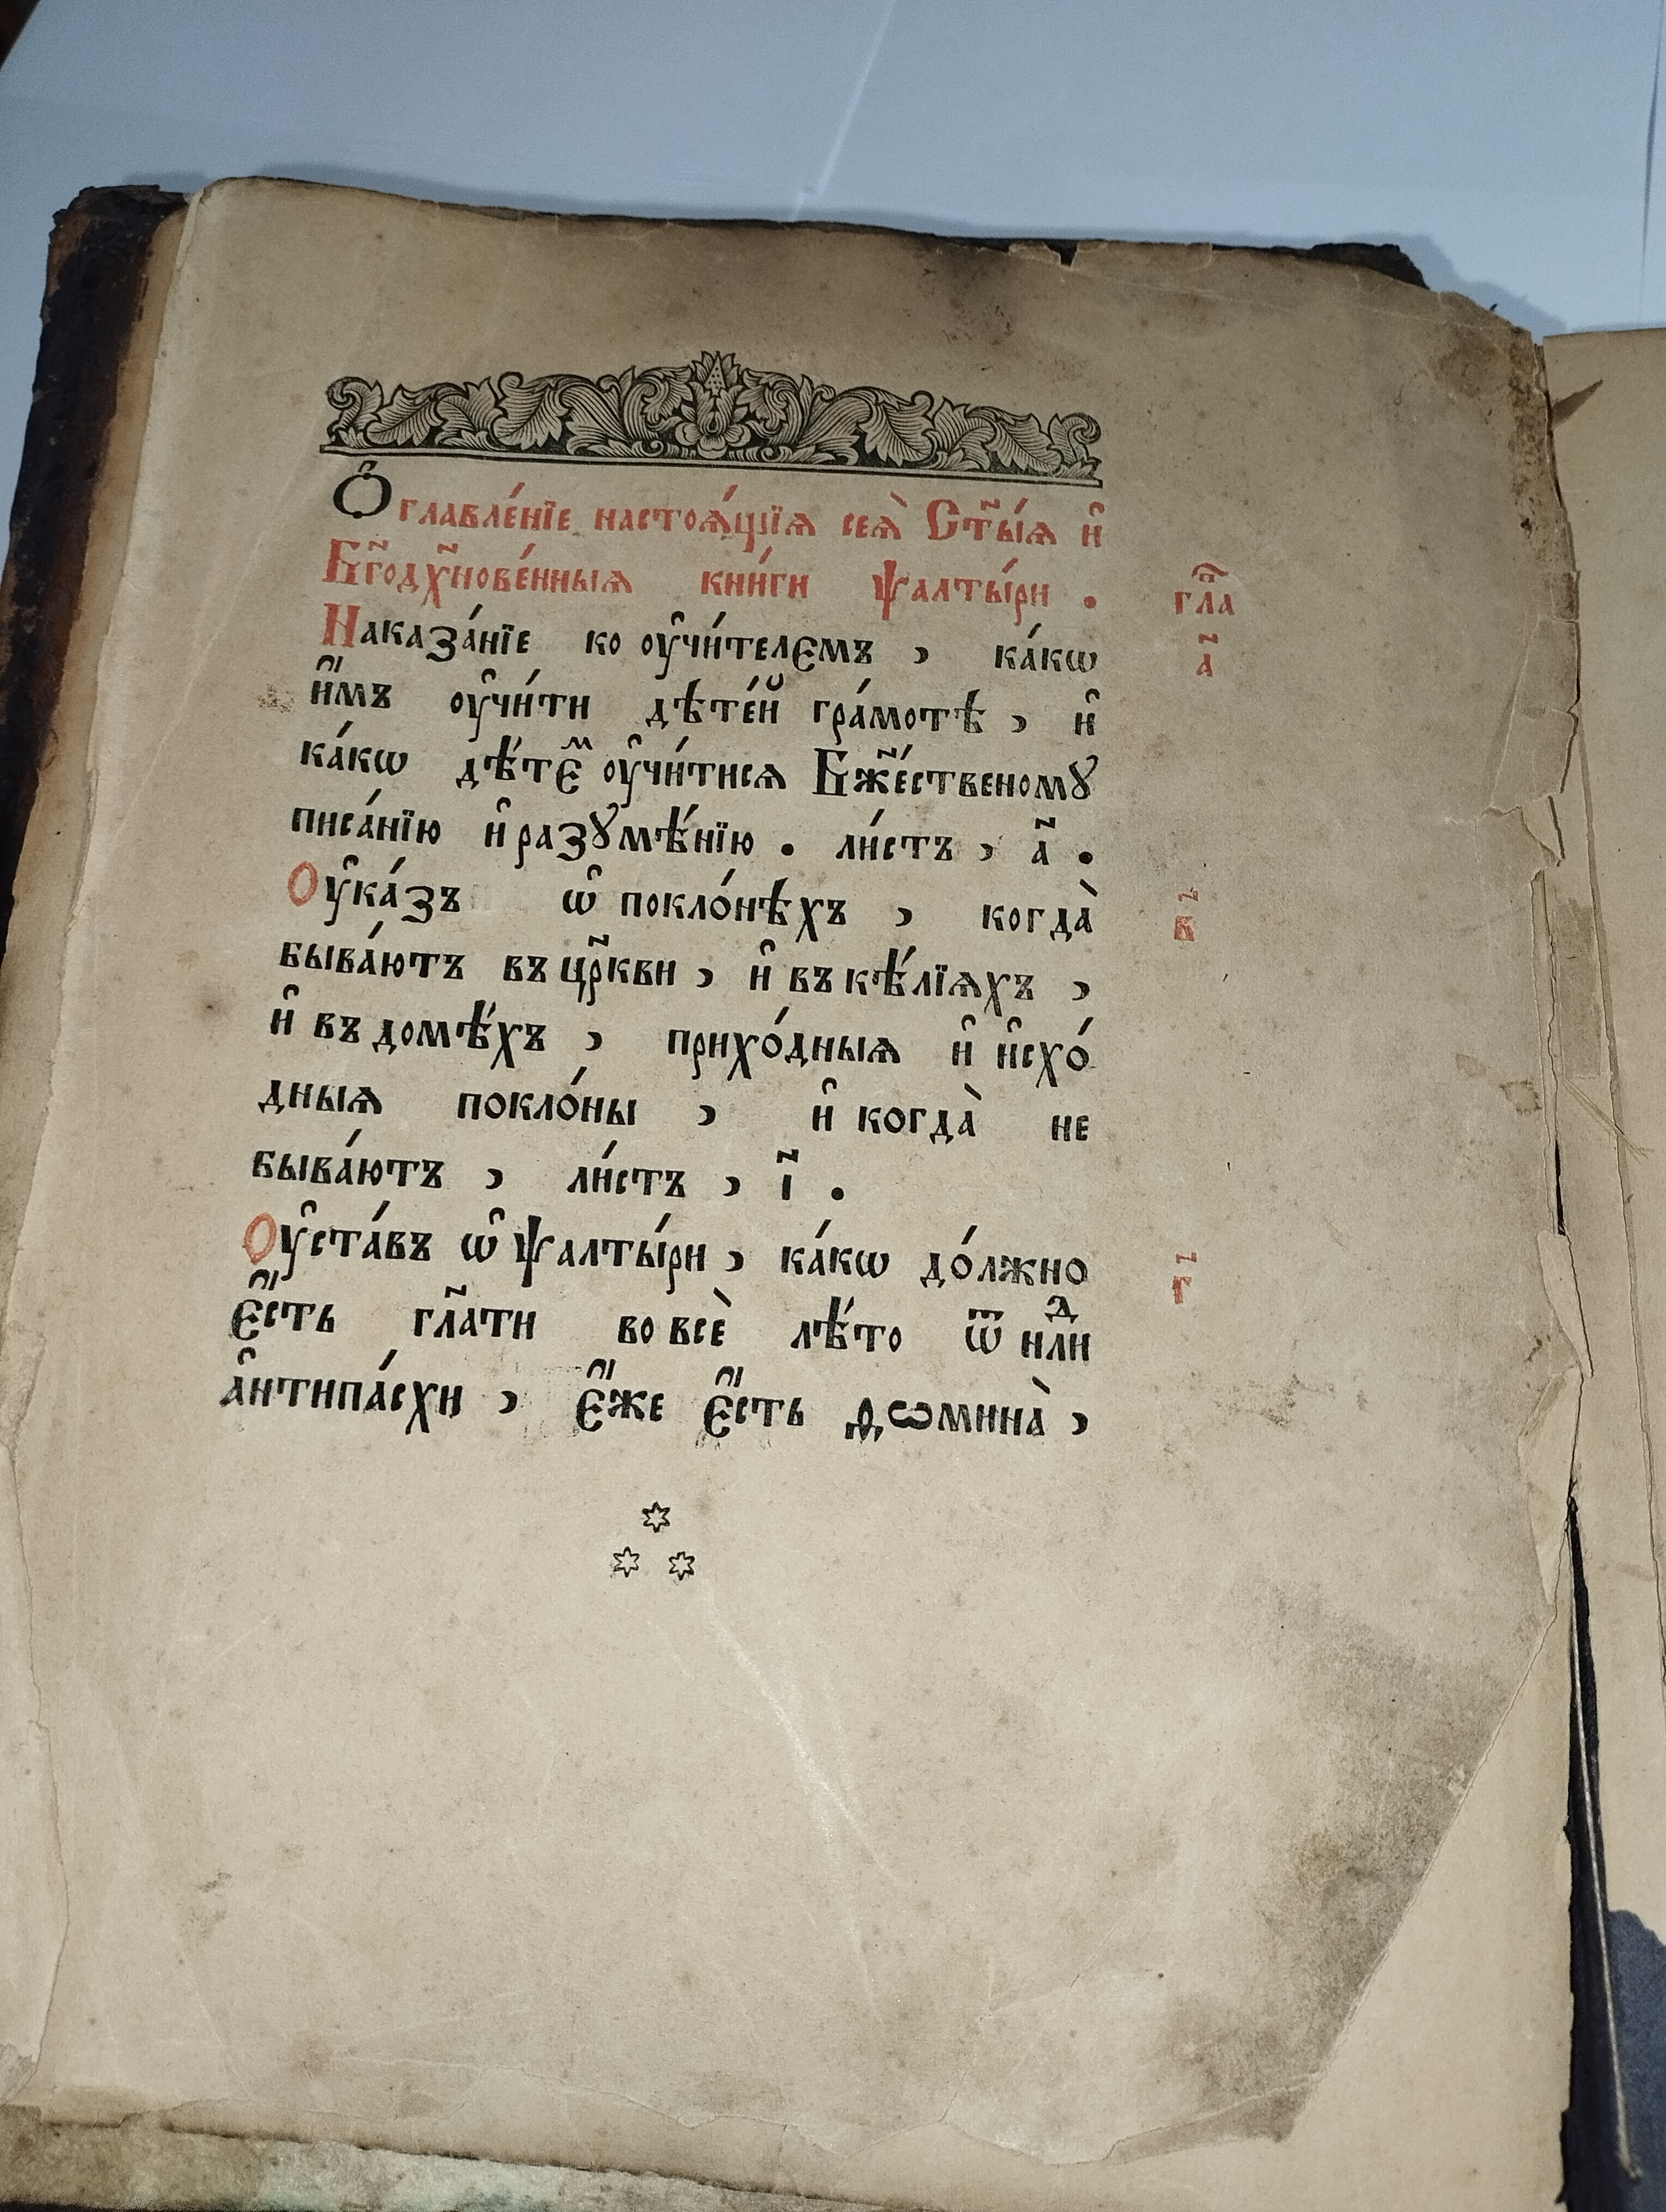 Ѻ҆главле́нїе настоѧ́щїѧ сеѧ̀ Ст҃ы́ѧ и҆
Бг҃одх҃нове́нныѧ кни́ги ѱалты́ри . гл҃а
Наказа́нїе ко ᲂу҆чи́телємъ , ка́кѡ а҃
и҆́мъ ᲂу҆чи́ти дѣте́й гра́мотѣ , и҆
ка́кѡ дѣ́тєⷨ ᲂу҆чи́тисѧ Бж҃е́ственомꙋ
писа́нїю и҆ разꙋмѣ́нїю . ли́стъ , а҃ .
Оу҆ка́зъ ѡ҆ покло́нѣхъ , когда̀ в҃
быва́ютъ въ цр҃кви , и҆ въ кѣ́лїѧхъ ,
и҆ въ домѣ́хъ , прихо́дныѧ и҆ и҆схо́
дныѧ покло́ны , и҆ когда̀ не
быва́ютъ , ли́стъ , і҃ .
Оу҆ста́въ ѡ҆ ѱалты́ри , ка́кѡ до́лжно г҃
є҆́сть гл҃ати во всѐ лѣ́то ѿ нлⷣи
а҆нтипа́схи , є҆́же є҆́сть ѳѡмина̀ ,